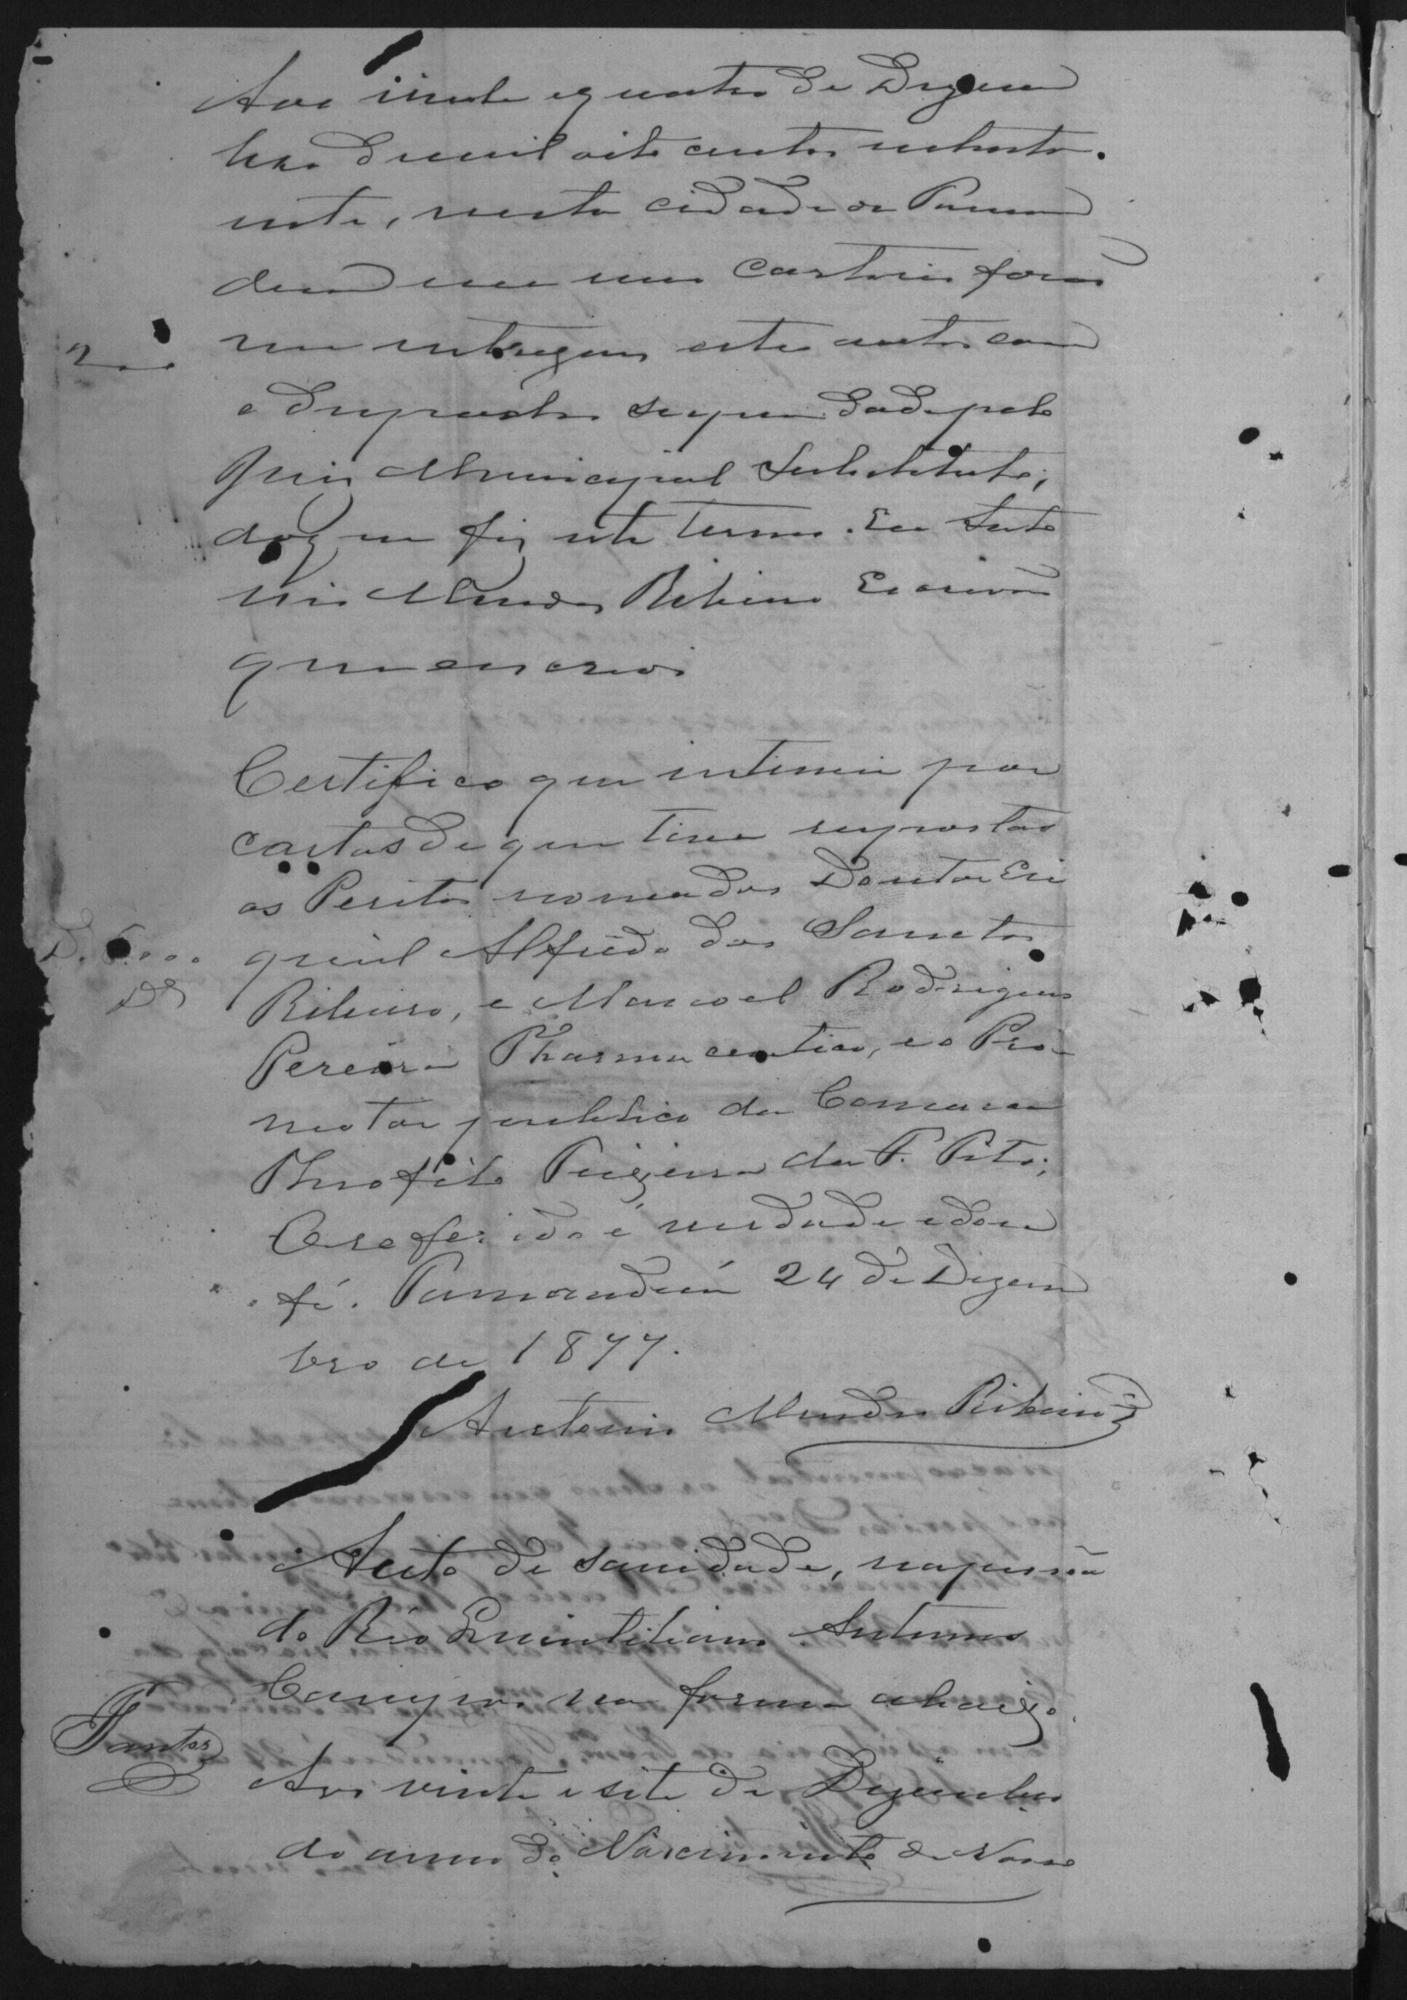 Aos vinte e quatro de Dezem
bro de mil oito centos setenta.
sete, nesta cidade de Parna
em meu cartorio forão
me entregues estes autos com
o despacho segun dado pelo
Juiz Municipal Substituto;
do que fiz este termo. Eu Anto
nio Mendes Ribeiro Escrivão
que escrevi
Certifico que intimei por
cartas de que tive respostas
os Peritos nomeados Doutor Eze
quiel Alfredo dos Santos
D. 6000
Ribeiro, e Manoel Rodrigues
Pereira Pharmaceutico, e o Pro
motor publico da Comarca
Theofilo da P. Pito;
O referido é verdade e dou
fé. 24 de Dezem
bro de 1877.
Antonio Mendes Ribeiro
Auto de sanidade, na pessôa
do Réo Quintiliano Antunes
Campos na forma abaixo.
Santos
Aos vinte e sete de Dezembro
do anno do Nascimento de Nosso